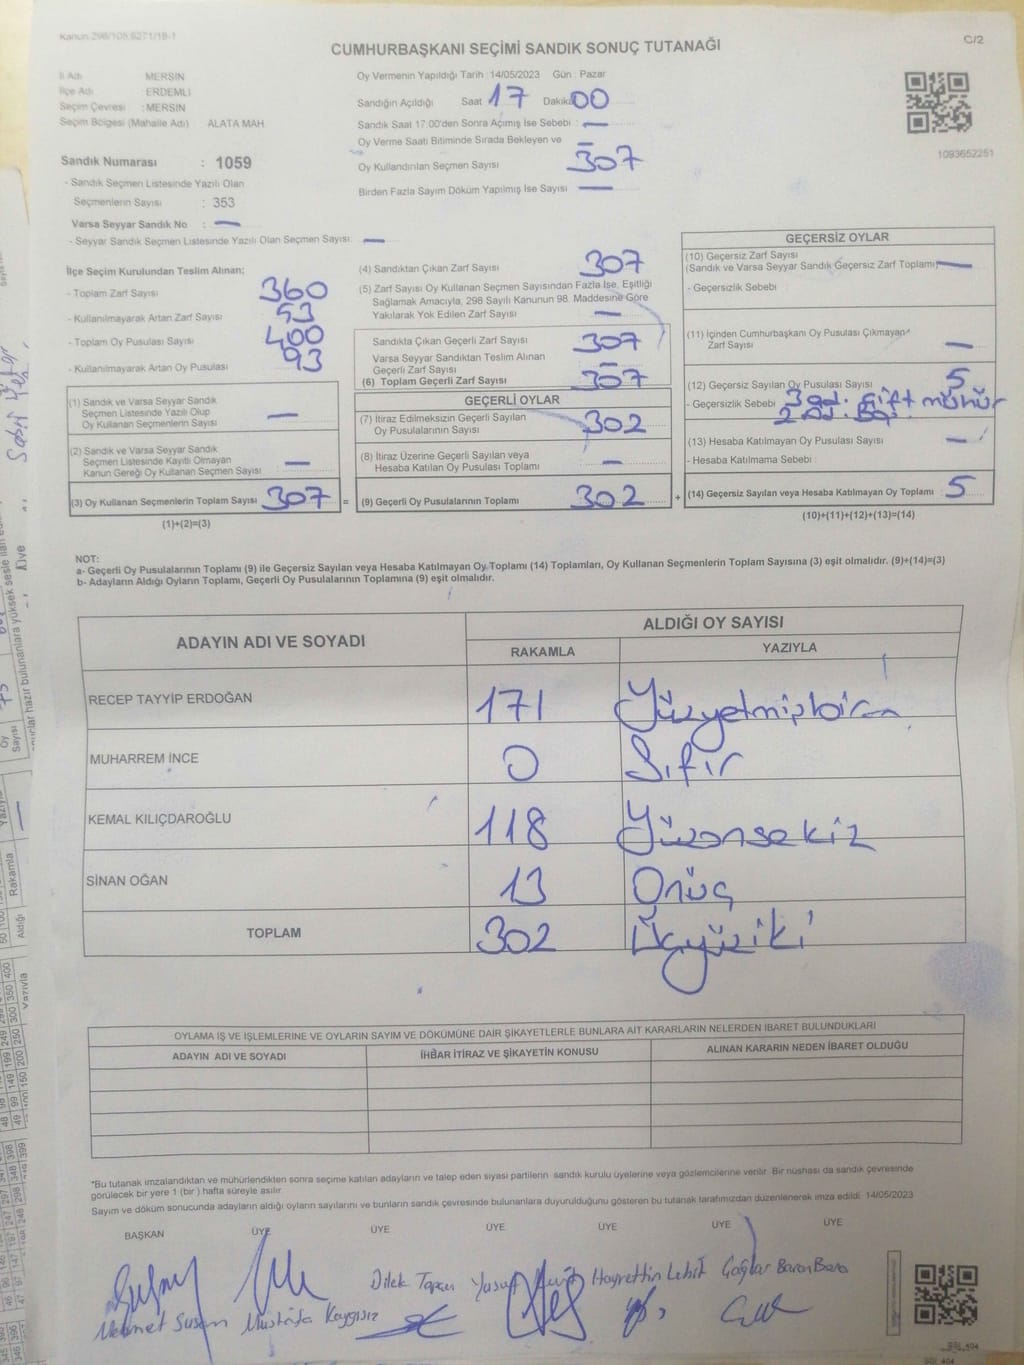 Kanun 298/105,6271/18-1
C/2
CUMHURBAŞKANI SEÇİMİ SANDIK SONUÇ TUTANAĞI
İl Adı MERSİN
İlçe Adı ERDEMLİ
Seçim Çevresi : MERSİN
Seçim Bölgesi (Mahalle Adı) ALATA MAH
Oy Vermenin Yapıldığı Tarih : 14/05/2023 Gün : Pazar
Sandığın Açıldığı Saat 17 Dakika 00
Sandık Saat 17:00'den Sonra Açımış İse Sebebi : —
Oy Verme Saati Bitiminde Sırada Bekleyen ve —
Oy Kullandırılan Seçmen Sayısı 307
Birden Fazla Sayım Döküm Yapılmış İse Sayısı —
1093652251
Sandık Numarası : 1059
- Sandık Seçmen Listesinde Yazılı Olan
Seçmenlerin Sayısı : 353
Varsa Seyyar Sandık No : —
- Seyyar Sandık Seçmen Listesinde Yazılı Olan Seçmen Sayısı: —
İlçe Seçim Kurulundan Teslim Alınan;
- Toplam Zarf Sayısı 360
- Kullanılmayarak Artan Zarf Sayısı 53
- Toplam Oy Pusulası Sayısı 400
- Kullanılmayarak Artan Oy Pusulası 93
(1) Sandık ve Varsa Seyyar Sandık
Seçmen Listesinde Yazılı Olup
Oy Kullanan Seçmenlerin Sayısı —
(2) Sandık ve Varsa Seyyar Sandık
Seçmen Listesinde Kayıtlı Olmayan
Kanun Gereği Oy Kullanan Seçmen Sayısı —
(3) Oy Kullanan Seçmenlerin Toplam Sayısı 307 =
(1)+(2)=(3)
(4) Sandıktan Çıkan Zarf Sayısı 307
(5) Zarf Sayısı Oy Kullanan Seçmen Sayısından Fazla İse, Eşitliği
Sağlamak Amacıyla, 298 Sayılı Kanunun 98. Maddesine Göre
Yakılarak Yok Edilen Zarf Sayısı —
Sandıkta Çıkan Geçerli Zarf Sayısı 307
Varsa Seyyar Sandıktan Teslim Alınan
Geçerli Zarf Sayısı —
(6) Toplam Geçerli Zarf Sayısı 307
GEÇERLİ OYLAR
(7) İtiraz Edilmeksizin Geçerli Sayılan
Oy Pusulalarının Sayısı 302
(8) İtiraz Üzerine Geçerli Sayılan veya
Hesaba Katılan Oy Pusulası Toplamı —
(9) Geçerli Oy Pusulalarının Toplamı 302 +
GEÇERSİZ OYLAR
(10) Geçersiz Zarf Sayısı
(Sandık ve Varsa Seyyar Sandık Geçersiz Zarf Toplamı) —
- Geçersizlik Sebebi :
(11) İçinden Cumhurbaşkanı Oy Pusulası Çıkmayan
Zarf Sayısı —
(12) Geçersiz Sayılan Oy Pusulası Sayısı 5
- Geçersizlik Sebebi : 3 ad. Çift mühür
2 Ad. Boş
(13) Hesaba Katılmayan Oy Pusulası Sayısı —
- Hesaba Katılmama Sebebi :
(14) Geçersiz Sayılan veya Hesaba Katılmayan Oy Toplamı : 5
(10)+(11)+(12)+(13)=(14)
NOT:
a- Geçerli Oy Pusulalarının Toplamı (9) ile Geçersiz Sayılan veya Hesaba Katılmayan Oy Toplamı (14) Toplamları, Oy Kullanan Seçmenlerin Toplam Sayısına (3) eşit olmalıdır. (9)+(14)=(3)
b- Adayların Aldığı Oyların Toplamı, Geçerli Oy Pusulalarının Toplamına (9) eşit olmalıdır.
ADAYIN ADI VE SOYADI ALDIĞI OY SAYISI
RAKAMLA YAZIYLA
RECEP TAYYİP ERDOĞAN 171 Yüzyetmişbir
MUHARREM İNCE 0 Sıfır
KEMAL KILIÇDAROĞLU 118 Yüzonsekiz
SİNAN OĞAN 13 Onüç
TOPLAM 302 Üçyüziki
OYLAMA İŞ VE İŞLEMLERİNE VE OYLARIN SAYIM VE DÖKÜMÜNE DAİR ŞİKAYETLERLE BUNLARA AİT KARARLARIN NELERDEN İBARET BULUNDUKLARI
ADAYIN ADI VE SOYADI İHBAR İTİRAZ VE ŞİKAYETİN KONUSU ALINAN KARARIN NEDEN İBARET OLDUĞU
*Bu tutanak imzalandıktan ve mühürlendikten sonra seçime katılan adayların ve talep eden siyasi partilerin sandık kurulu üyelerine veya gözlemcilerine verilir. Bir nüshası da sandık çevresinde
görülecek bir yere 1 (bir) hafta süreyle asılır.
Sayım ve döküm sonucunda adayların aldığı oyların sayılarını ve bunların sandık çevresinde bulunanlara duyurulduğunu gösteren bu tutanak tarafımızdan düzenlenerek imza edildi. 14/05/2023
BAŞKAN ÜYE ÜYE ÜYE ÜYE ÜYE ÜYE
Mehmet Mustafa Kaygısız Dilek Yusuf Hayrettin Çağlar Baran